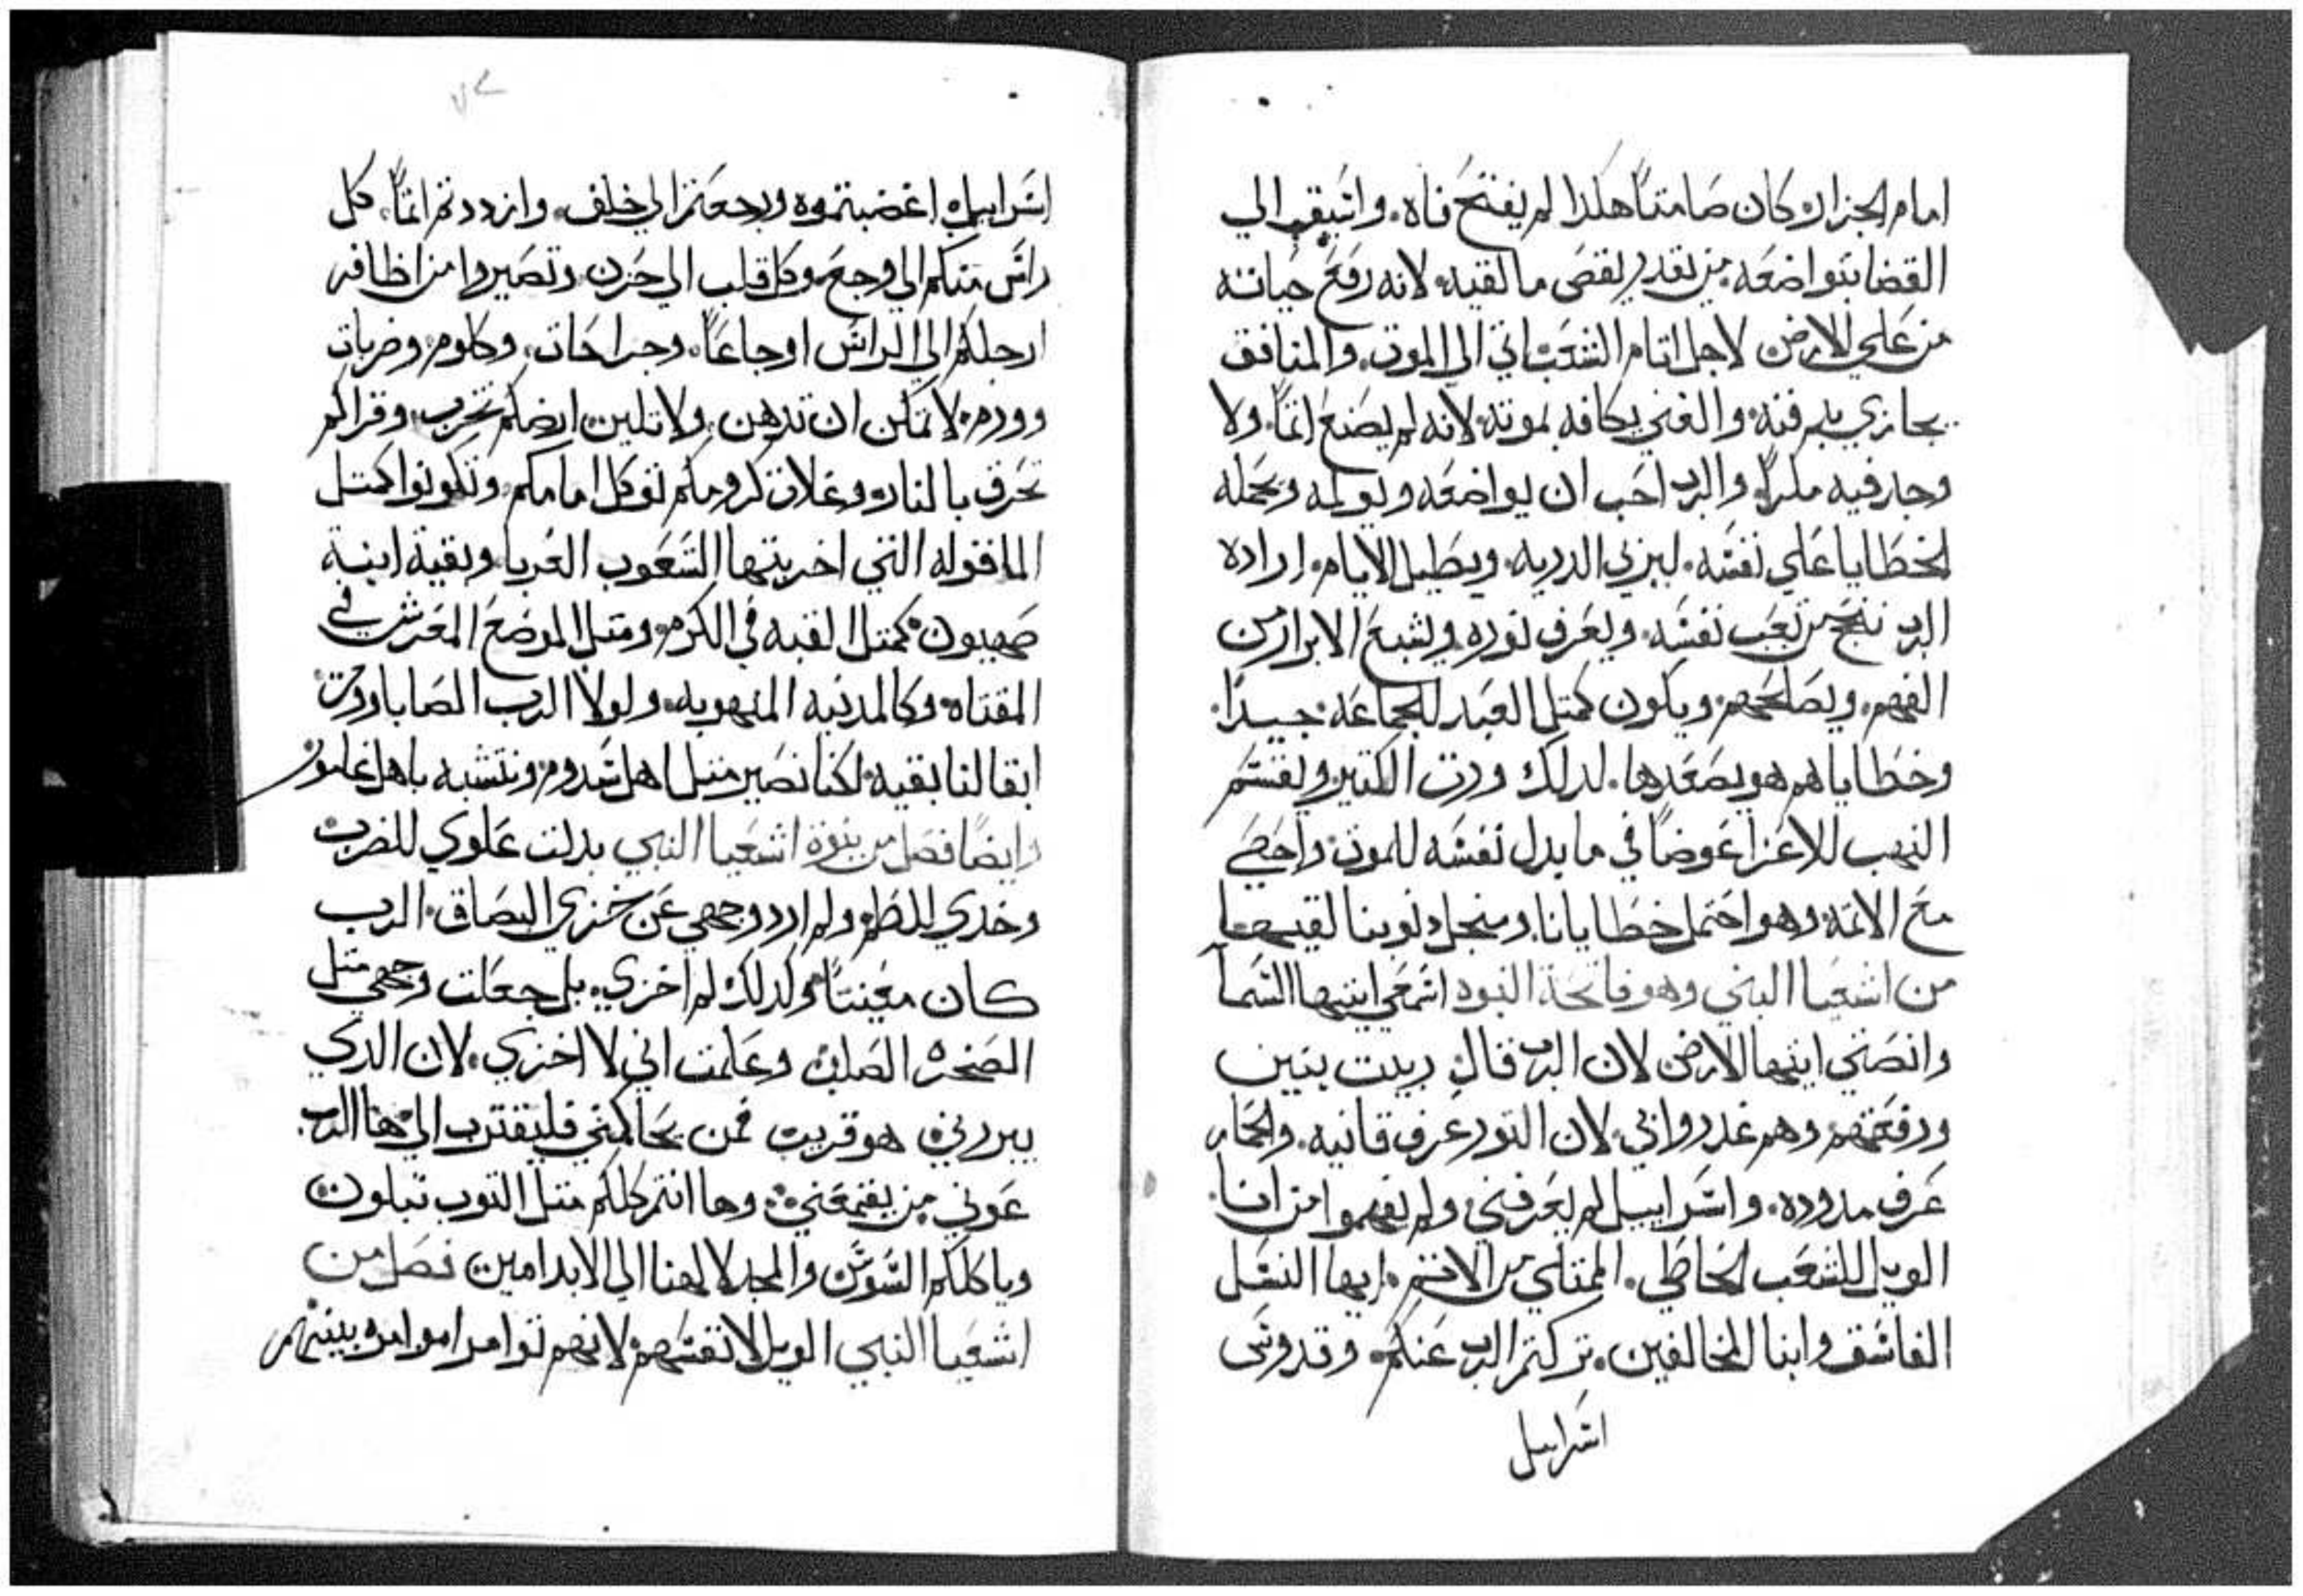 امام الجزار كان صامتاً هكذا لم يفتح فاه. واستيقن الي
القضا بتواضعه. من يقدر يقص مالقيه لانه رفع حياته
من علي الارض لاجل اتام الشعب اتي الي الموت. والمنافق
يجازي بدفنه. والغني يكافه بموته لانه لم يصنع اتماً. ولا
وجد فيه مكراً. والرب احب ان يواضعه ويولمه ويحمله
الخطايا علي نفسه. ليري الدريه. ويطيل الايام. اراده
الرب نجح من تعب نفسه. ويعرف نوره. ويشبع الابرار من
الفهم. ويصلحهم. ويكون كمتل العبد للجماعه. جيداً.
وخطاياهم هو يصعدها. لدلك ورت الكتير ويقسم
النهب للاعزا عوضاً في ما بدل نفسه للموت. واحصي
مع الاتمه. وهو احتمل خطايانا. ومن اجل دنوبنا لقيها
من اشعيا النبي وهو فاتحة النبوه اسمعي ايتها السما
وانصتي ايتها الارض لان الرب قال ربيت بنين
ورفعتهم وهم غدروا بي. لان التور عرف قانيه. والحمار
عرف مدوده. واسراييل لم يعرفني ولم يفهموا من انا.
الويل للشعب الخاطي. الممتلي من الاتم. ايها النسل
الفاسق وابنا المخالفين. تركتم الرب عنكم. وقدوس
اسراييل
اسراييل اغضبتموه ورجعتم الي خلف. وازددتم اتماً. كل
راس منكم الي وجع. وكل قلب الي حزن. وتصيروا من اظافر
ارجلكم الي الراس اوجاعاً. وجراحات. وكلوم. وضربات
وورم. لا تمكن ان تدهن. ولا تلين. ارضكم تخرب. وقراكم
تحرق بالنار. وغلات كرومكم توكل امامكم. وتكونوا كمتل
المافوله التي اخربتها الشعوب الغربا. وبقية ابنة
صهيون كمتل القبه في الكرم. ومتل الموضع المعرش في
المقتاه. وكالمدينه المنهوبه. ولولا الرب الصاباووت
ابقا لنا بقيه. لكنا نصير متل اهل سدوم ونتشبه باهل غامور
وايضاً فصل من نبوة اشعيا النبي بدلت علوي للضرب
وخدي للطم. ولم ارد وجهي عن خزي البصاق. الرب
كان معيناً. ولدلك لم اخزي. بل جعلت وجهي متل
الصخره الصلبه وعلمت اني لا اخزي. لان الدي
يبررني هو قريب فمن يحاكمني فليقترب الي. ها الرب
عوني من يقمعني. وها انتم كلكم متل التوب تبلون
وياكلكم السوس. والمجد لالهنا الي الابد امين فصل من
اشعيا النبي الويل لانفسهم لانهم توامروا موامره بينهم